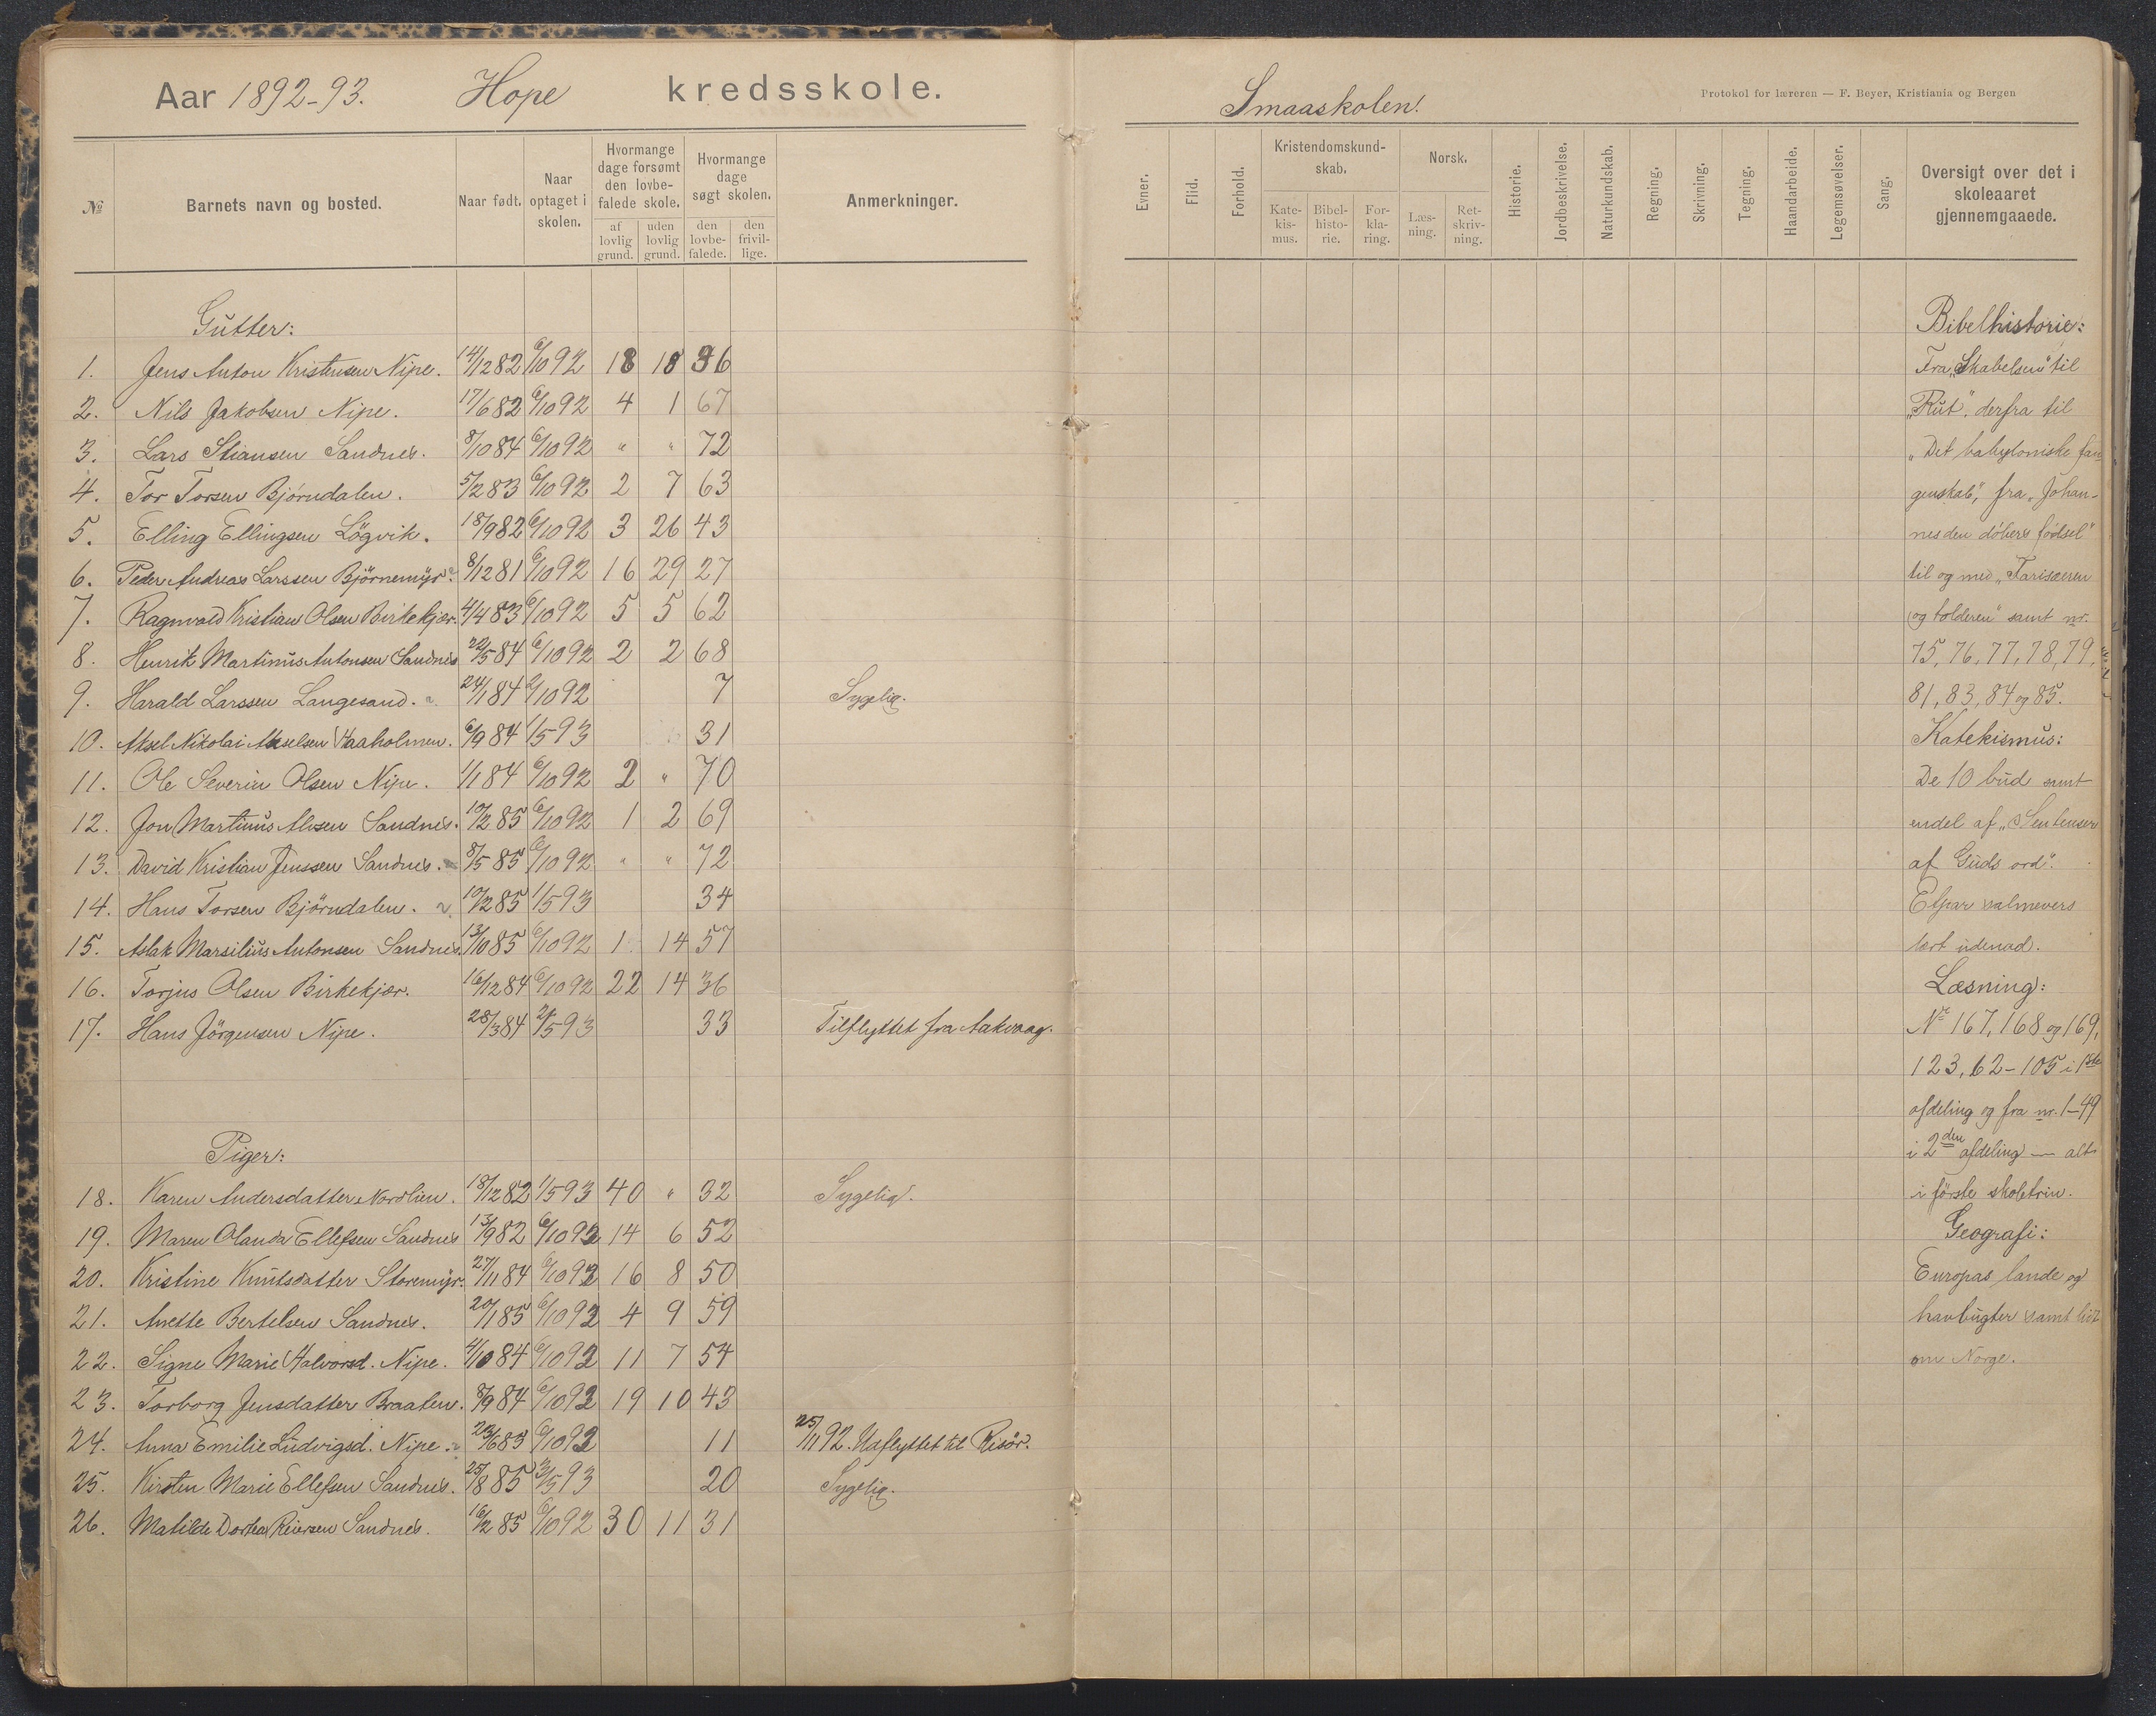 Aar 1892-93. Hope kredsskole.
№
Barnets navn og bosted.
Naar født.
Naar optaget i skolen.
Hvormange dage forsømt den lovbefalede skole.
af lovlig grund.
uden lovlig grund.
Hvormange dage søgt skolen.
den lovbefalede.
den frivillige.
Anmerkninger.
Gutter:
1. Jens Anton Kristensen Nipe. 14/12 82 6/10 92 18 18 36
2. Nils Jakobsen Nipe. 17/6 82 6/10 92 4 1 67
3. Lars Stiansen Sandnes. 8/10 84 6/10 92 " " 72
4. Tor Torsen Bjørndalen. 5/2 83 6/10 92 2 7 63
5. Elling Ellingsen Lögvik. 18/9 82 6/10 92 3 26 43
6. Peder Andreas Larssen Björnemyr. 8/12 81 6/10 92 16 29 27
7. Ragnvald Kristian Olsen Birkekjær. 4/4 83 6/10 92 5 5 62
8. Henrik Martinus Antonsen Sandnes 22/5 84 6/10 92 2 2 68
9. Harald Larssen Langesand. 24/1 84 /10 92 7 Sygelig.
10. Aksel Nikolai Akselsen Haaholmen. 6/9 84 1/5 93 31
11. Ole Severin Olsen Nipe. 1/1 84 6/10 92 2 " 70
12. Jon Martinus Alvsen Sandnes. 10/2 85 6/10 92 1 2 69
13. David Kristian Jenssen Sandnes. 8/5 85 6/10 92 " " 72
14. Hans Torsen Björndalen. 10/2 85 1/5 93 34
15. Aslak Marsilius Antonsen Sandnes. 13/10 85 6/10 92 1 14 57
16. Torjus Olsen Birkekjær. 16/12 84 6/10 92 22 14 36
17. Hans Jörgensen Nipe. 28/3 84 2/5 93 33 Tilflyttet fra Aakvaag.
Piger:
18. Karen Andersdatter Nordlien. 18/12 82 1/5 93 40 " 32 Sygelig.
19. Maren Olanda Ellefsen Sandnes 13/9 82 6/10 92 14 6 52
20. Kristine Knutsdatter Storemyr. 27/11 84 6/10 92 16 8 50
21. Anette Bertelsen Sandnes. 20/1 85 6/10 92 4 9 59
22. Signe Marie Halvorsd. Nipe. 4/10 84 6/10 92 11 7 54
23. Torborg Jensdatter Braaten. 8/9 84 6/10 92 19 10 43
24. Anna Emilie Ludvigsd. Nipe. 23/6 83 6/10 92 11 25/11 92. Udflyttet til Risör.
25. Kirsten Marie Ellefsen Sandnes. 25/8 85 3/5 93 20 Sygelig.
26. Matilde Dortea Reiersen Sandnes. 16/2 85 6/10 92 30 11 31
Smaaskolen.
Protokol for læreren — F. Beyer, Kristiania og Bergen
Evner.
Flid.
Forhold.
Kristendomskundskab.
Katekismus.
Bibelhistorie.
Forklaring.
Norsk.
Læsning.
Retskrivning.
Historie.
Jordbeskrivelse.
Naturkundskab.
Regning.
Skrivning.
Tegning.
Haandarbeide.
Legemsøvelser.
Sang.
Oversigt over det i
skoleaaret
gjennemgaaede.
Bibelhistorie:
Fra „Skabelsen" til
„Rut", derfra til
„Det babyloniske fan
genskab", fra „Johan-
nes den döbers födsel"
til og med „Farisæeren
og tolderen" samt nr.
75, 76, 77, 78, 79,
81, 83, 84 og 85.
Katekismus:
De 10 bud samt
endel af „Sentenser
af Guds ord".
Etpar salmevers
lært udenad.
Læsning:
Nr 167, 168 og 169,
123, 62-105 i 1ste
afdeling og fra nr. 1-49
i 2den afdeling — alt
i förste skoletrin.
Geografi:
Europas lande og
havbugter samt lidt
om Norge.